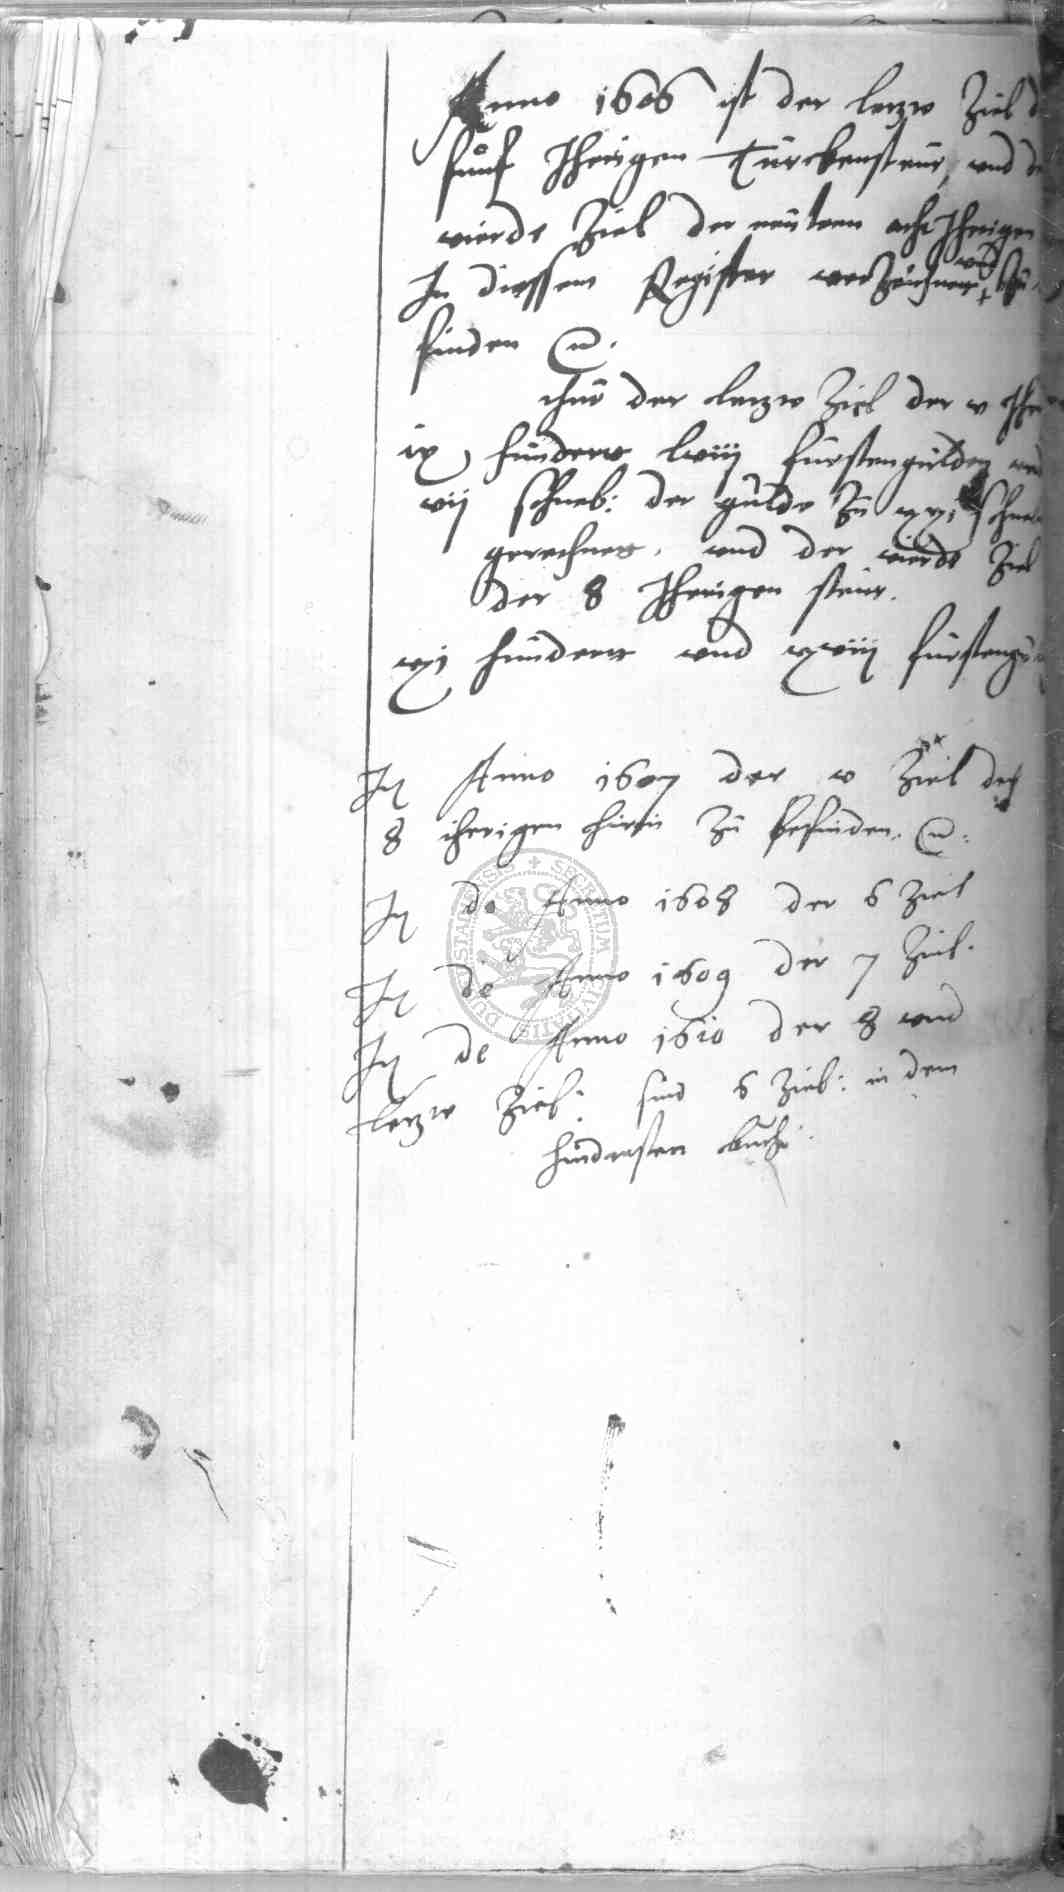 Anno 1606 ist der letzte Ziel d
fünf Jherigen Türckensteur, und d
vierde Ziel der neüwen acht Jherigen
In diessem Register verzeichnet und zu
finden etc.
thut der letzte Ziel der v Jhe
ix hundert lviij fürstengulden und
vij schneb: der gulde zu xxj schne
gerechnet, und der vierde Ziel
der 8 Jherigen steur.
xj hundert und xxviij fürstengu
In Anno 1607 der v Ziel der
8 iherigen hirin zu befinden. etc.
In de Anno 1608 der 6 Ziel
In de Anno 1609 der 7 Ziel.
In de Anno 1610 der 8 und
letzte Ziel: sind 6 Ziel: in dem
hindersten buch.
SECRETUM CIVITATIS